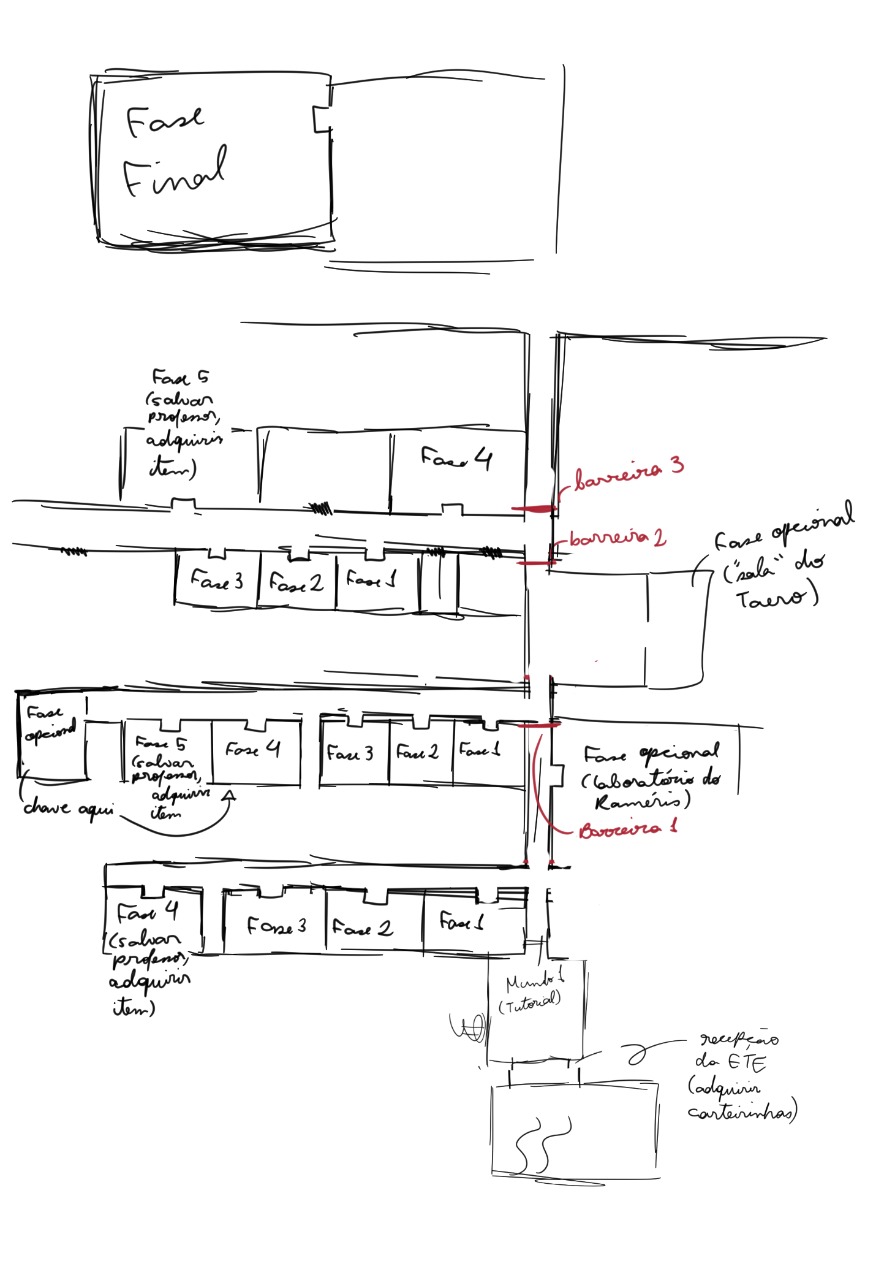 Fase
Final
Fase 5
(salvar
professor,
adquirir
item)
Fase 4
barreira 3
barreira 2
Fase 3
Fase 2
Fase 1
Fase opcional
("sala" do
Taero)
Fase
opcional
Fase 5
(salvar
professor,
adquirir
item
Fase 4
Fase 3
Fase 2
Fase 1
Fase opcional
(laboratório do
Raméris)
chave aqui
Barreira 1
Fase 4
(salvar
professor,
adquirir
item)
Fase 3
Fase 2
Fase 1
Mundo 1
(Tutorial)
recepção
da ETE
(adquirir
carteirinhas)